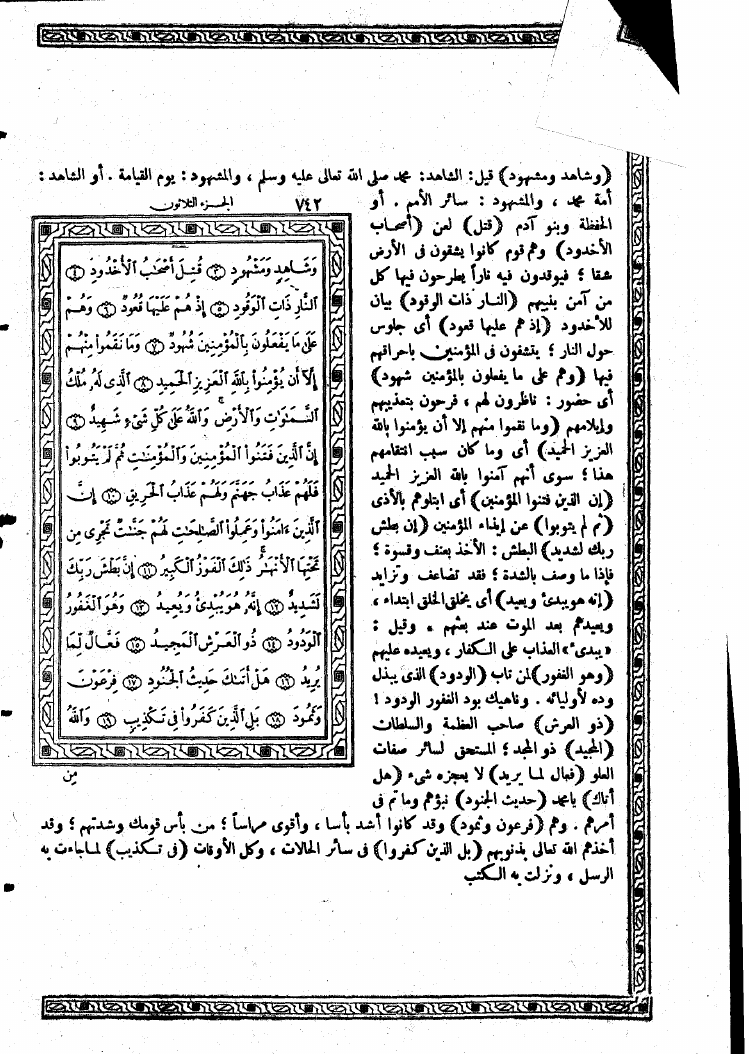 (وشاهد ومشهود) قيل: الشاهد: محمد صلى الله تعالى عليه وسلم ، والمشهود: يوم القيامة . أو الشاهد:
أمة محمد ، والمشهود : سائر الأمم . أو
الحفظة وبنو آدم (قتل) لعن (أصحاب
الأخدود) وهم قوم كانوا يشقون فى الأرض
شقا ؛ فيوقدون فيه ناراً يطرحون فيها كل
من آمن بنبيهم (النار ذات الوقود) بيان
للأخدود (إذ هم عليها قعود) أى جلوس
حول النار ؛ يتشفون فى المؤمنين باحراقهم
فيها (وهم على ما يفعلون بالمؤمنين شهود)
أى حضور : ناظرون لهم ، فرحون بتعذيبهم
وإيلامهم (وما نقموا منهم إلا أن يؤمنوا بالله
العزيز الحميد) أى وما كان سبب انتقامهم
هذا ؛ سوى أنهم آمنوا بالله العزيز الحميد
(إن الذين فتنوا المؤمنين) أى ابتلوهم بالأذى
(ثم لم يتوبوا) عن إيذاء المؤمنين (إن بطش
ربك لشديد) البطش : الأخذ بعنف وقسوة ؛
فإذا ما وصف بالشدة ؛ فقد تضاعف وتزايد
(إنه هو يبدئ ويعيد) أى يخلق الخلق ابتداء ،
ويعيدهم بعد الموت عند بعثهم . وقيل :
«يبدئ» العذاب على الكفار ، ويعيده عليهم
(وهو الغفور) لمن تاب (الودود) الذى يبذل
وده لأوليائه . وناهيك بود الغفور الودود !
(ذو العرش) صاحب العظمة والسلطان
(المجيد) ذو المجد ؛ المستحق لسائر صفات
العلو (فعال لما يريد) لا يعجزه شىء (هل
أتاك) يا محمد (حديث الجنود) نبؤهم وما تم فى
أمرهم . وهم (فرعون وثمود) وقد كانوا أشد بأسا ، وأقوى مراساً ؛ من بأس قومك وشدتهم ؛ وقد
أخذهم الله تعالى بذنوبهم (بل الذين كفروا) فى سائر الحالات ، وكل الأوقات (فى تكذيب) لما جاءت به
الرسل ، ونزلت به الكتب
٧٤٢ الجزء الثلاثون
وَشَاهِدٍ وَمَشْهُودٍ ﴿٣﴾ قُتِلَ أَصْحَٰبُ ٱلْأُخْدُودِ ﴿٤﴾
ٱلنَّارِ ذَاتِ ٱلْوَقُودِ ﴿٥﴾ إِذْ هُمْ عَلَيْهَا قُعُودٌ ﴿٦﴾ وَهُمْ
عَلَىٰ مَا يَفْعَلُونَ بِٱلْمُؤْمِنِينَ شُهُودٌ ﴿٧﴾ وَمَا نَقَمُوا۟ مِنْهُمْ
إِلَّآ أَن يُؤْمِنُوا۟ بِٱللَّهِ ٱلْعَزِيزِ ٱلْحَمِيدِ ﴿٨﴾ ٱلَّذِى لَهُۥ مُلْكُ
ٱلسَّمَٰوَٰتِ وَٱلْأَرْضِ ۚ وَٱللَّهُ عَلَىٰ كُلِّ شَىْءٍ شَهِيدٌ ﴿٩﴾
إِنَّ ٱلَّذِينَ فَتَنُوا۟ ٱلْمُؤْمِنِينَ وَٱلْمُؤْمِنَٰتِ ثُمَّ لَمْ يَتُوبُوا۟
فَلَهُمْ عَذَابُ جَهَنَّمَ وَلَهُمْ عَذَابُ ٱلْحَرِيقِ ﴿١٠﴾ إِنَّ
ٱلَّذِينَ ءَامَنُوا۟ وَعَمِلُوا۟ ٱلصَّٰلِحَٰتِ لَهُمْ جَنَّٰتٌ تَجْرِى مِن
تَحْتِهَا ٱلْأَنْهَٰرُ ۚ ذَٰلِكَ ٱلْفَوْزُ ٱلْكَبِيرُ ﴿١١﴾ إِنَّ بَطْشَ رَبِّكَ
لَشَدِيدٌ ﴿١٢﴾ إِنَّهُۥ هُوَ يُبْدِئُ وَيُعِيدُ ﴿١٣﴾ وَهُوَ ٱلْغَفُورُ
ٱلْوَدُودُ ﴿١٤﴾ ذُو ٱلْعَرْشِ ٱلْمَجِيدُ ﴿١٥﴾ فَعَّالٌ لِّمَا
يُرِيدُ ﴿١٦﴾ هَلْ أَتَىٰكَ حَدِيثُ ٱلْجُنُودِ ﴿١٧﴾ فِرْعَوْنَ
وَثَمُودَ ﴿١٨﴾ بَلِ ٱلَّذِينَ كَفَرُوا۟ فِى تَكْذِيبٍ ﴿١٩﴾ وَٱللَّهُ
من